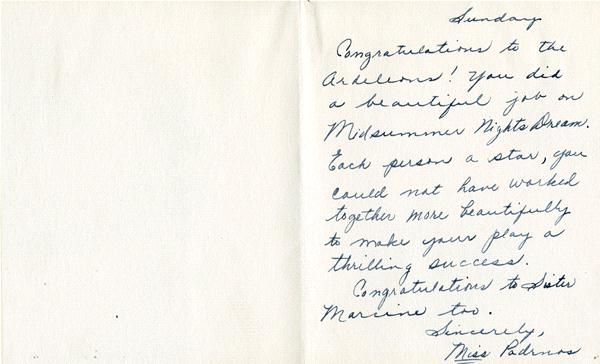 Sunday
Congratulations to the
Ardeleons! You did
a beautiful job on
Midsummer Nights Dream.
Each person a star, you
could not have worked
together more beautifully
to make your play a
thrilling success.
Congratulations to Sister
Marcine too.
Sincerely,
Miss Padrnos